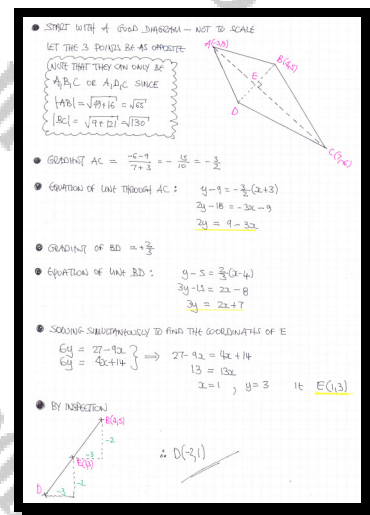 START WITH A GOOD DIAGRAM — NOT TO SCALE
LET THE 3 POINTS BE AS OPPOSITE
NOTE THAT THEY CAN ONLY BE
A,B,C OR A,D,C SINCE
|AB| = √49+16 = √65
|BC| = √9+121 = √130
A(-3,9)
B(4,5)
E
D
C(7,-6)
GRADIENT AC = -6-9/7+3 = -15/10 = -3/2
EQUATION OF LINE THROUGH AC:
y-9 = -3/2(x+3)
2y-18 = -3x-9
2y = 9-3x
GRADIENT OF BD = +2/3
EQUATION OF LINE BD:
y-5 = 2/3(x-4)
3y-15 = 2x-8
3y = 2x+7
SOLVING SIMULTANEOUSLY TO FIND THE COORDINATES OF E
6y = 27-9x
6y = 4x+14
⟹ 27-9x = 4x+14
13 = 13x
x=1 , y=3 IE E(1,3)
BY INSPECTION
B(4,5)
-2
-3
E(1,3)
-2
-3
D
∴ D(-2,1)